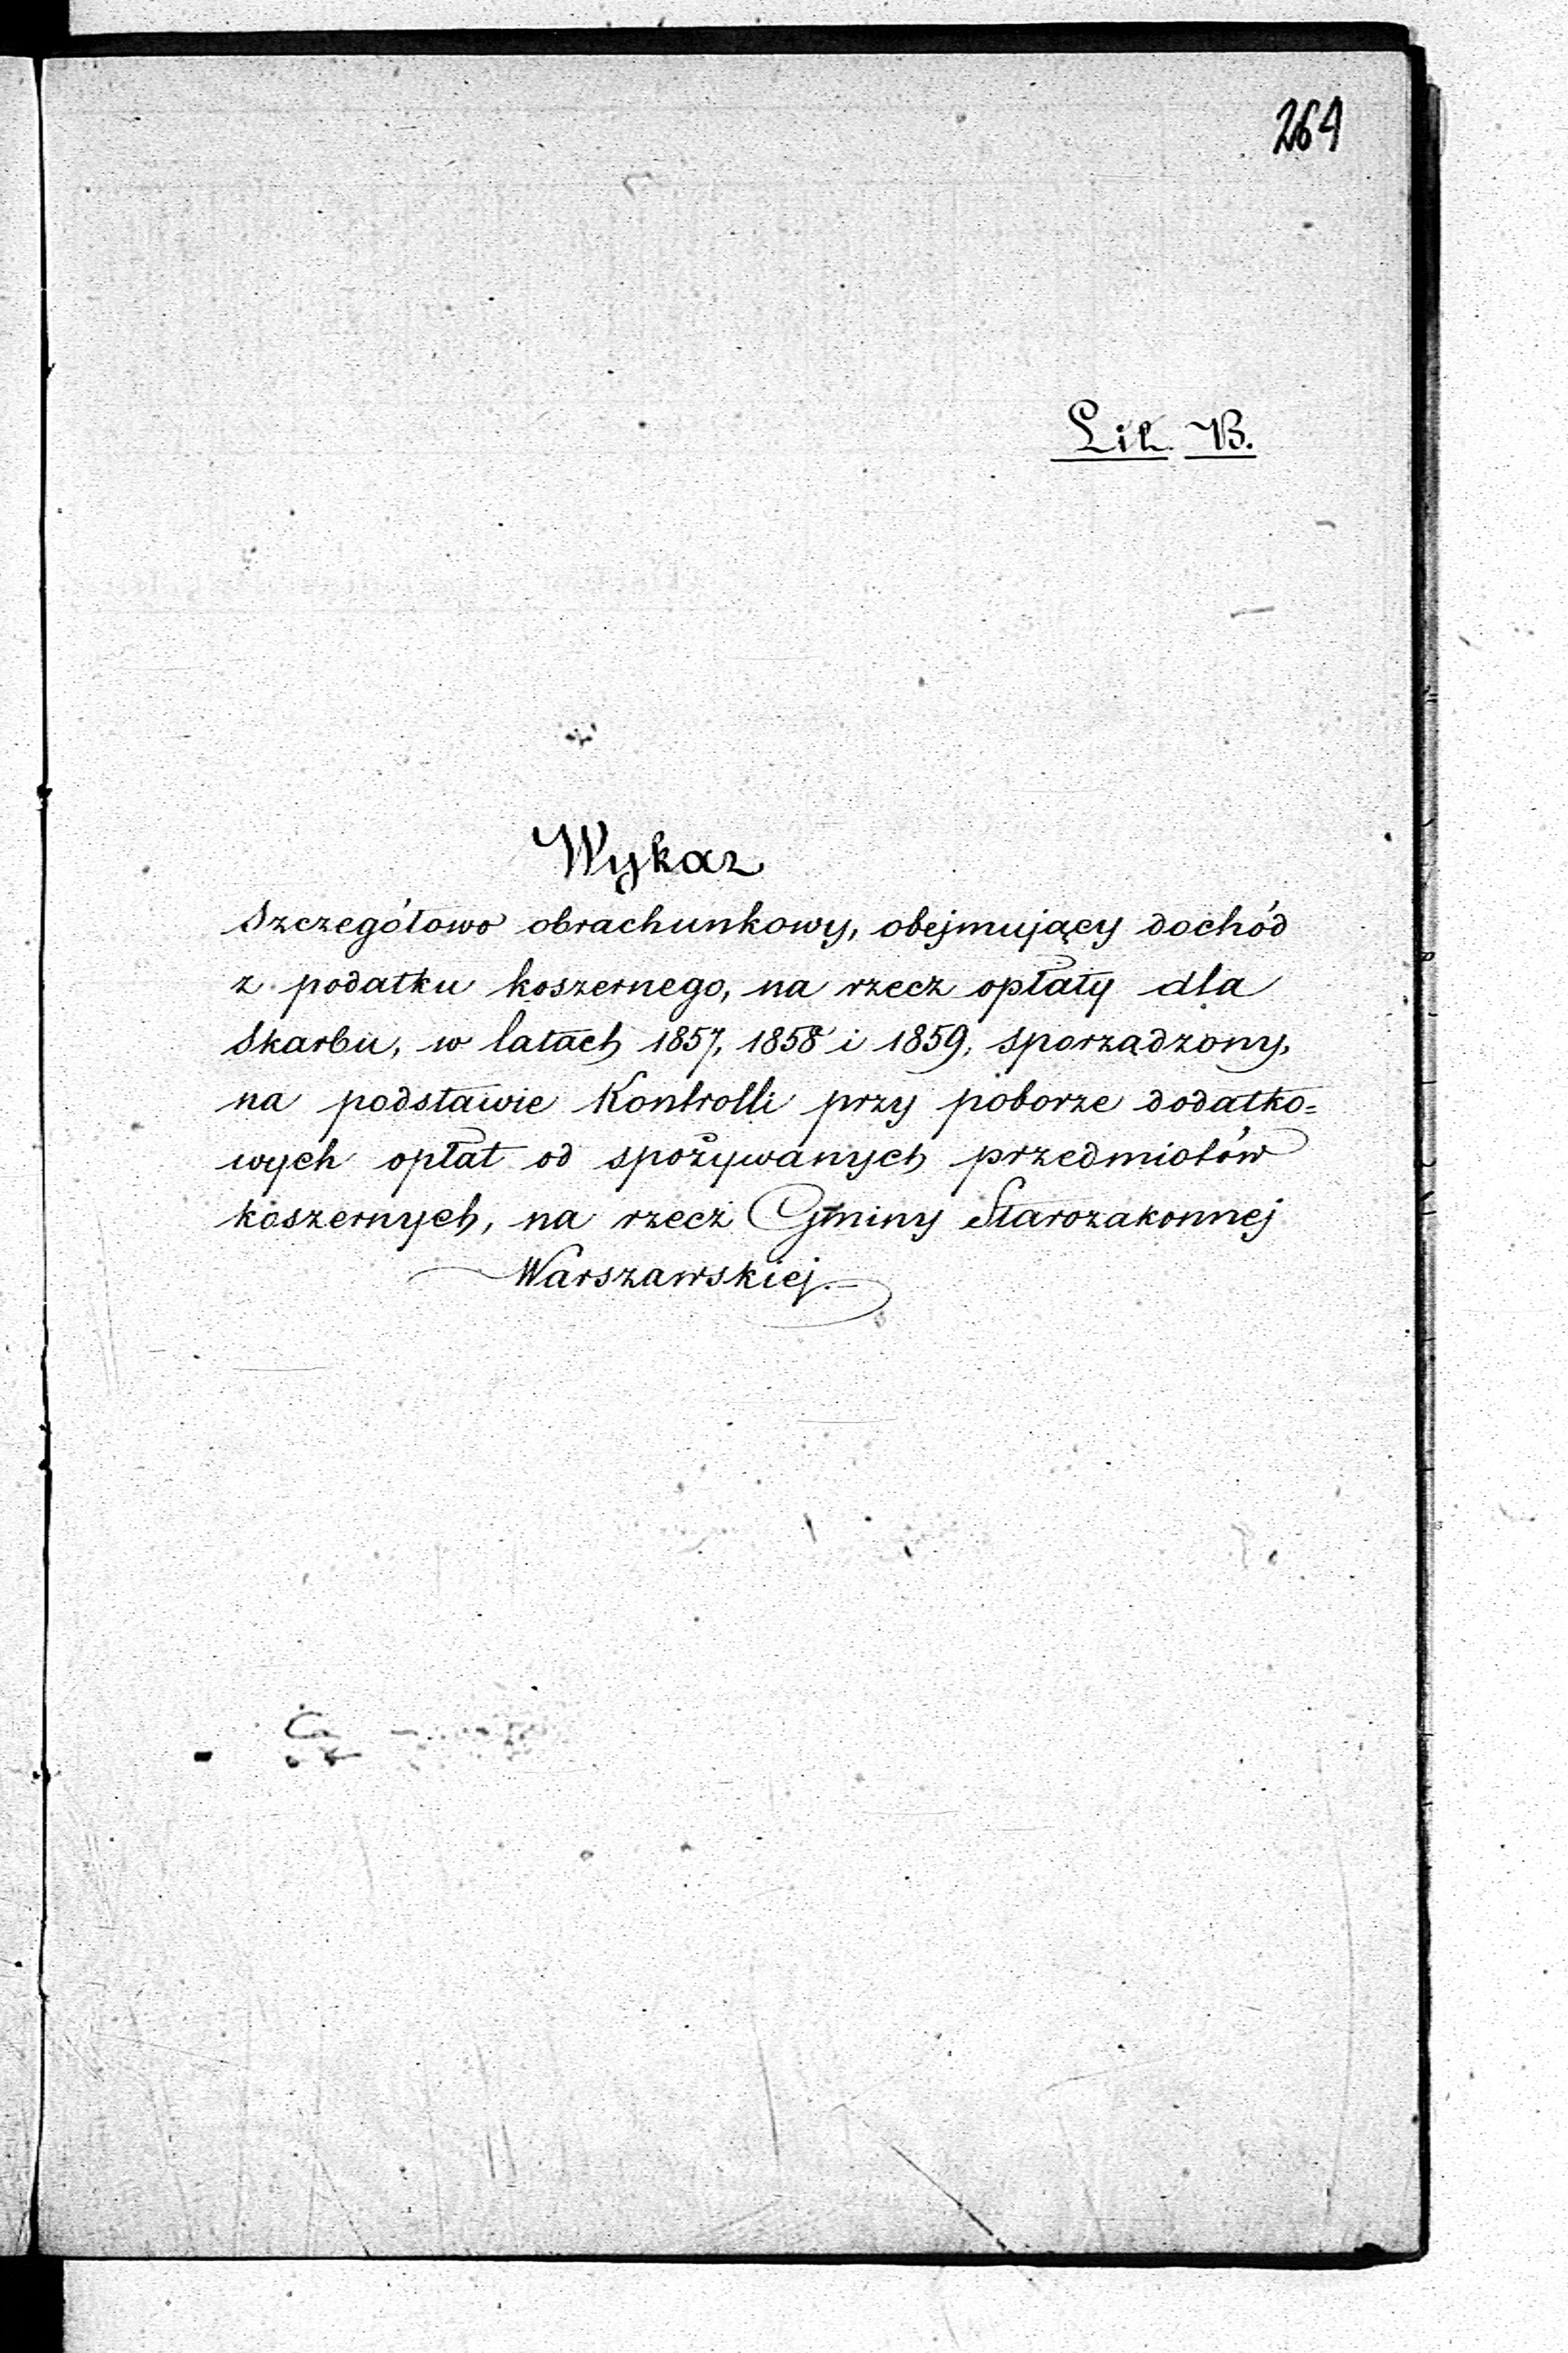 264
Lit. B.
Wykaz
Szczegółowo obrachunkowy, obejmujący dochód
z podatku koszernego, na rzecz opłaty dla
Skarbu, w latach 1857, 1858 i 1859, sporządzony,
na podstawie Kontrolli przy poborze dodatko=
wych opłat od spożywanych przedmiotów
koszernych, na rzecz Gminy Starozakonnej
Warszawskiej.